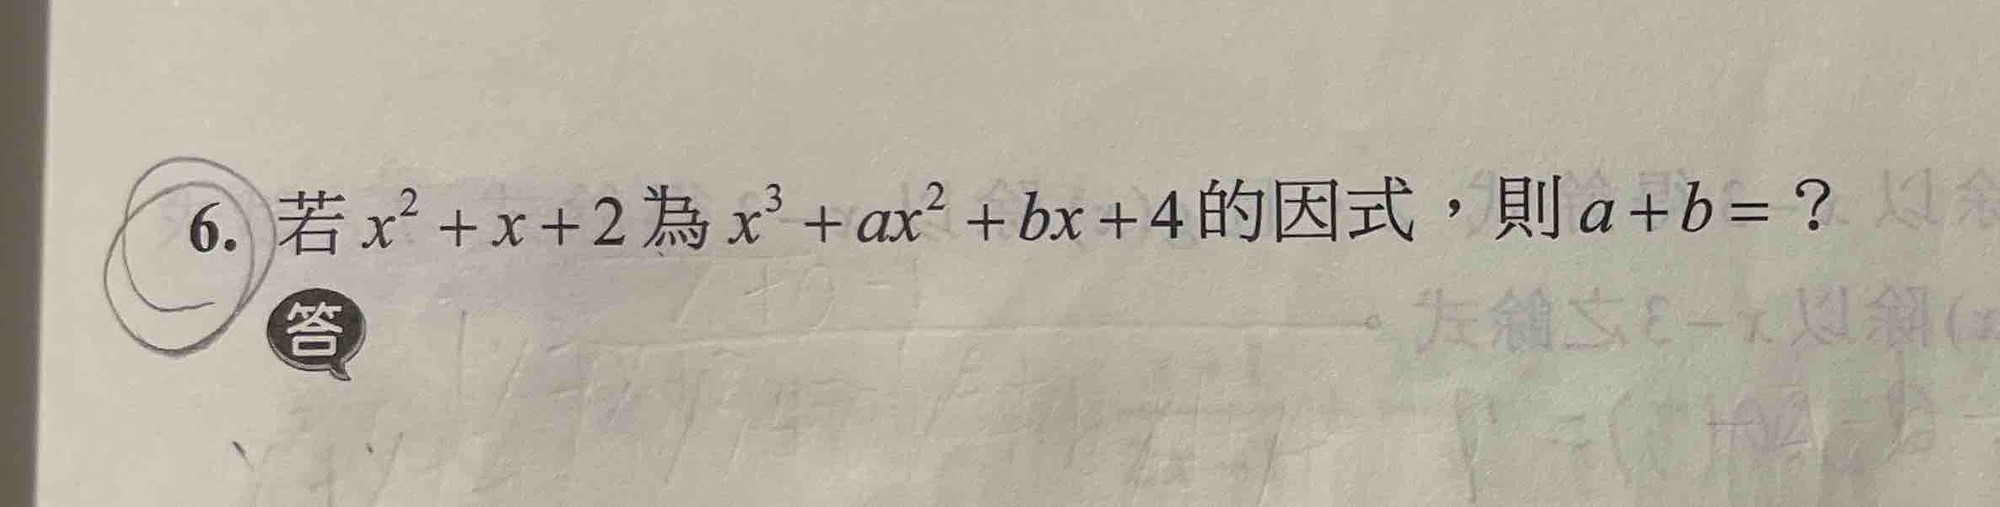 6. 若 x² + x + 2 為 x³ + ax² + bx + 4 的因式，則 a + b = ？
答